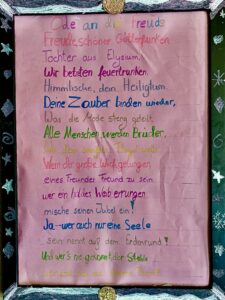 Ode an die Freude
Freudeschöner Götterfunken
Tochter aus Elysium,
Wir betreten feuertrunken.
Himmlische, dein Heiligtum.
Deine Zauber binden wieder,
Was die Mode streng geteilt
Alle Menschen werden Brüder,
Wem der große
eines Freundes Freund zu sein
wer ein holdes Weib errungen
mische seinen Jubel ein!
Ja-wer auch nur eine Seele
sein nennt auf dem Erdenrund!
Und wer's nie gekonnt der stehle